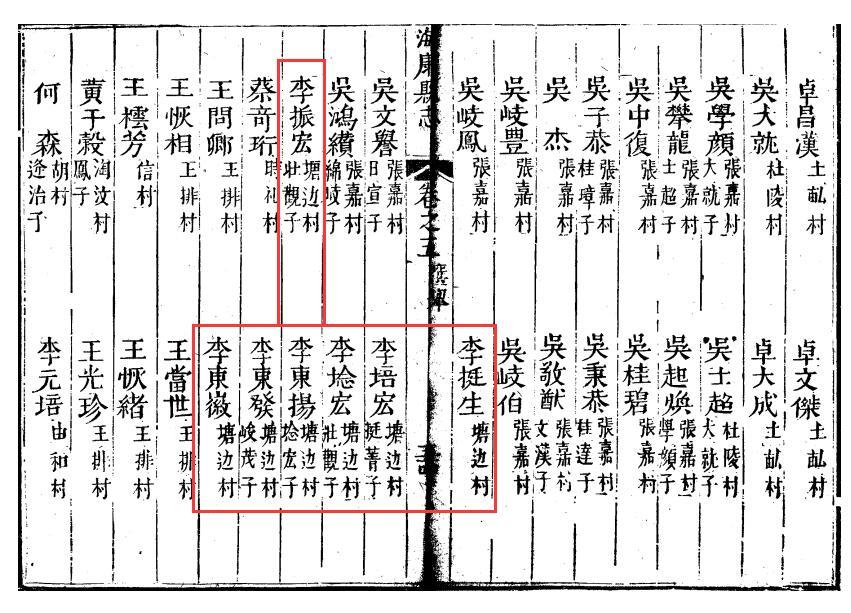 卓昌漢 土村
卓文傑 土村
吳大就 杜陵村
卓大成 土村
吳學顏 張嘉村 大就子
吳士超 杜陵村 大就子
吳犖龍 張嘉村 士超子
吳起煥 張嘉村 學顏子
吳中復 張嘉村
吳桂碧 張嘉村
吳子恭 張嘉村 桂璋子
吳秉恭 張嘉村 桂達子
吳杰 張嘉村
吳敬猷 張嘉村 文漢子
吳岐豊 張嘉村
吳岐伯 張嘉村
吳岐鳳 張嘉村
李挺生 塘边村
海康縣志 卷之五 選舉
吳文譽 張嘉村 日宣子
李培宏 塘边村 挺菁子
吳鴻纘 張嘉村 綿岐子
李埝宏 塘边村 壯觀子
李振宏 塘边村 壯觀子
李東揚 塘边村 埝宏子
蔡奇珩 時礼村
李東發 塘边村 峻茂子
王問卿 王排村
李東 塘边村
王恢相 王排村
王當世 王排村
王芳 信村
王恢緒 王排村
黃于穀 淘汶村 鳳子
王光珍 王排村
何森 胡村 逢治子
李元培 由和村